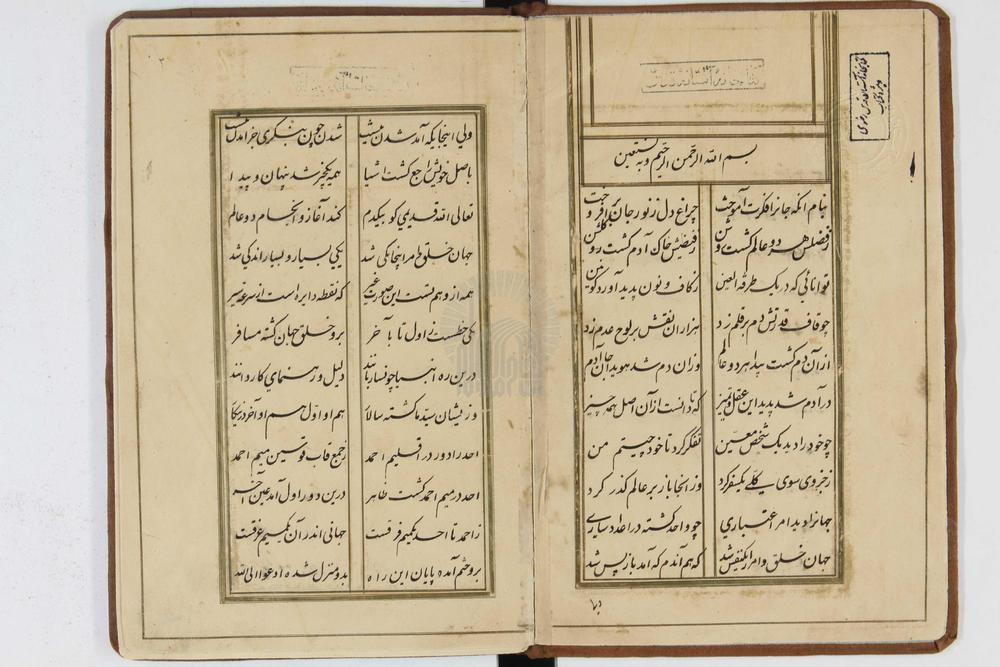 بسم الله الرحمن الرحیم وبه نستعین
بنام آنکه جانرا فکرت آموخت چراغ دل ز نور جان برافروخت
ز فضلش هر دو عالم گشت روشن ز فیضش خاک آدم گشت گلشن
توانائی که در یک طرفة العین ز کاف و نون پدید آورد کونین
چو قاف قدرتش دم بر قلم زد هزاران نقش بر لوح عدم زد
از آن دم گشت پیدا هر دو عالم وزان دم شد هویدا جان آدم
در آدم شد پدید این عقل و تمیز که تا دانست از آن اصل همه چیز
چو خود را دید یک شخص معین تفکر کرد تا خود چیستم من
ز جزوی سوی کلی یکسفر کرد وز آنجا باز بر عالم گذر کرد
جهانرا دید امر اعتباری چو واحد گشته در اعداد ساری
جهان خلق و امر از یکنفس شد که هم آندم که آمد باز پس شد
ولی اینجایگه آمد شدن نیست شدن چون بنگری جز آمدن نیست
باصل خویش راجع گشت اشیا همه یکچیز شد پنهان و پیدا
تعالی الله قدیمی کو بیکدم کند آغاز و انجام دو عالم
جهان خلق و امر اینجا یکی شد یکی بسیار و بسیار اندکی شد
همه از وهم تست این صورت غیر که نقطه دایره است از سرعت سیر
یکی خطست ز اول تا بآخر برو خلق جهان گشته مسافر
درین ره انبیا چو نساربانند دلیل و رهنمای کاروانند
وز یشان سید ما گشته سالار هم او اول هم او آخر درینکار
احد را دور در اقلیم احمد ز جمع قاب قوسین میم احمد
احد در میم احمد گشت ظاهر درین دور اول آمد عین آخر
ز احمد تا احد یکمیم فرقست جهانی اندر آن یکمیم غرقست
برو ختم آمده پایان این راه بدو منزل شده ادعوا الی الله